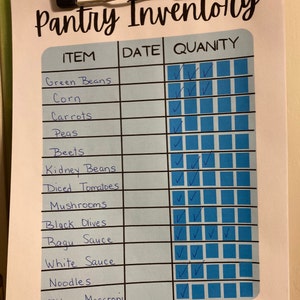 Pantry Inventory
ITEM DATE QUANITY
Green Beans
Corn
Carrots
Peas
Beets
Kidney Beans
Diced Tomatoes
Mushrooms
Black Olives
Ragu Sauce
White Sauce
Noodles